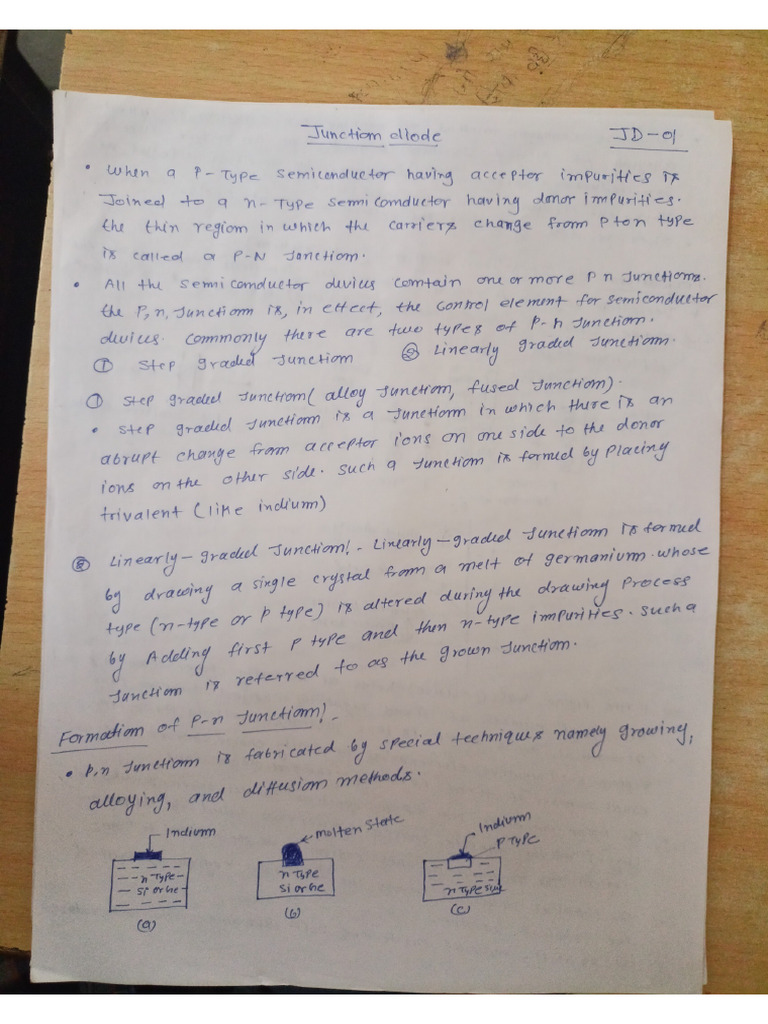 Junction diode JD-01
• When a P-Type semiconductor having acceptor impurities is
Joined to a n-Type semiconductor having donor impurities.
the thin region in which the carriers change from P to n type
is called a P-N Junction.
• All the semiconductor devices contain one or more P n Junctions.
the P,n, Junction is, in effect, the control element for semiconductor
devices. Commonly there are two types of P-n Junction.
① Step graded Junction ② Linearly graded Junction.
① Step graded Junction (alloy Junction, fused Junction).
• Step graded Junction is a Junction in which there is an
abrupt change from acceptor ions on one side to the donor
ions on the other side. such a Junction is formed by placing
trivalent (like indium)
② Linearly-graded Junction:- Linearly-graded Junction is formed
by drawing a single crystal from a melt of germanium whose
type (n-type or p type) is altered during the drawing process
by Adding first p type and then n-type impurities. such a
Junction is referred to as the grown Junction.
Formation of P-n Junction:-
• P,n Junction is fabricated by special techniques namely growing,
alloying, and diffusion methods.
Indium
n Type
Si or Ge
(a)
molten state
n Type
Si or Ge
(b)
Indium
P TYPE
n Type
(c)